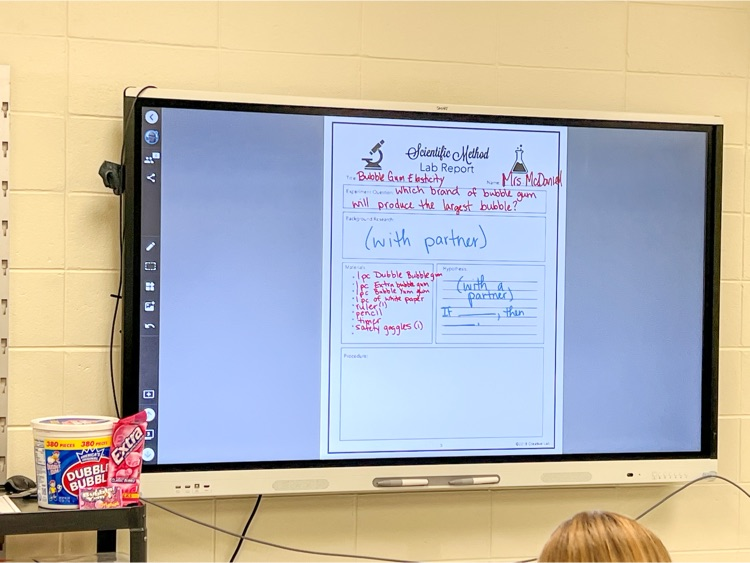 Scientific Method
Lab Report
Title: Bubble Gum Elasticity
Name: Mrs McDaniel
Experiment Question: Which brand of bubble gum
will produce the largest bubble?
Background Research:
(with partner)
Materials:
· 1 pc Dubble Bubblegum
· 1 pc Extra bubble gum
· 1 pc Bubble Yum gum
· 1 pc of white paper
· ruler (1)
· pencil
· timer
· safety goggles (1)
Hypothesis:
(with a
partner)
If ____, then
____.
Procedure:
380 PIECES 380 PIECES
AMERICA'S
DUBBLE
BUBBLE
Extra